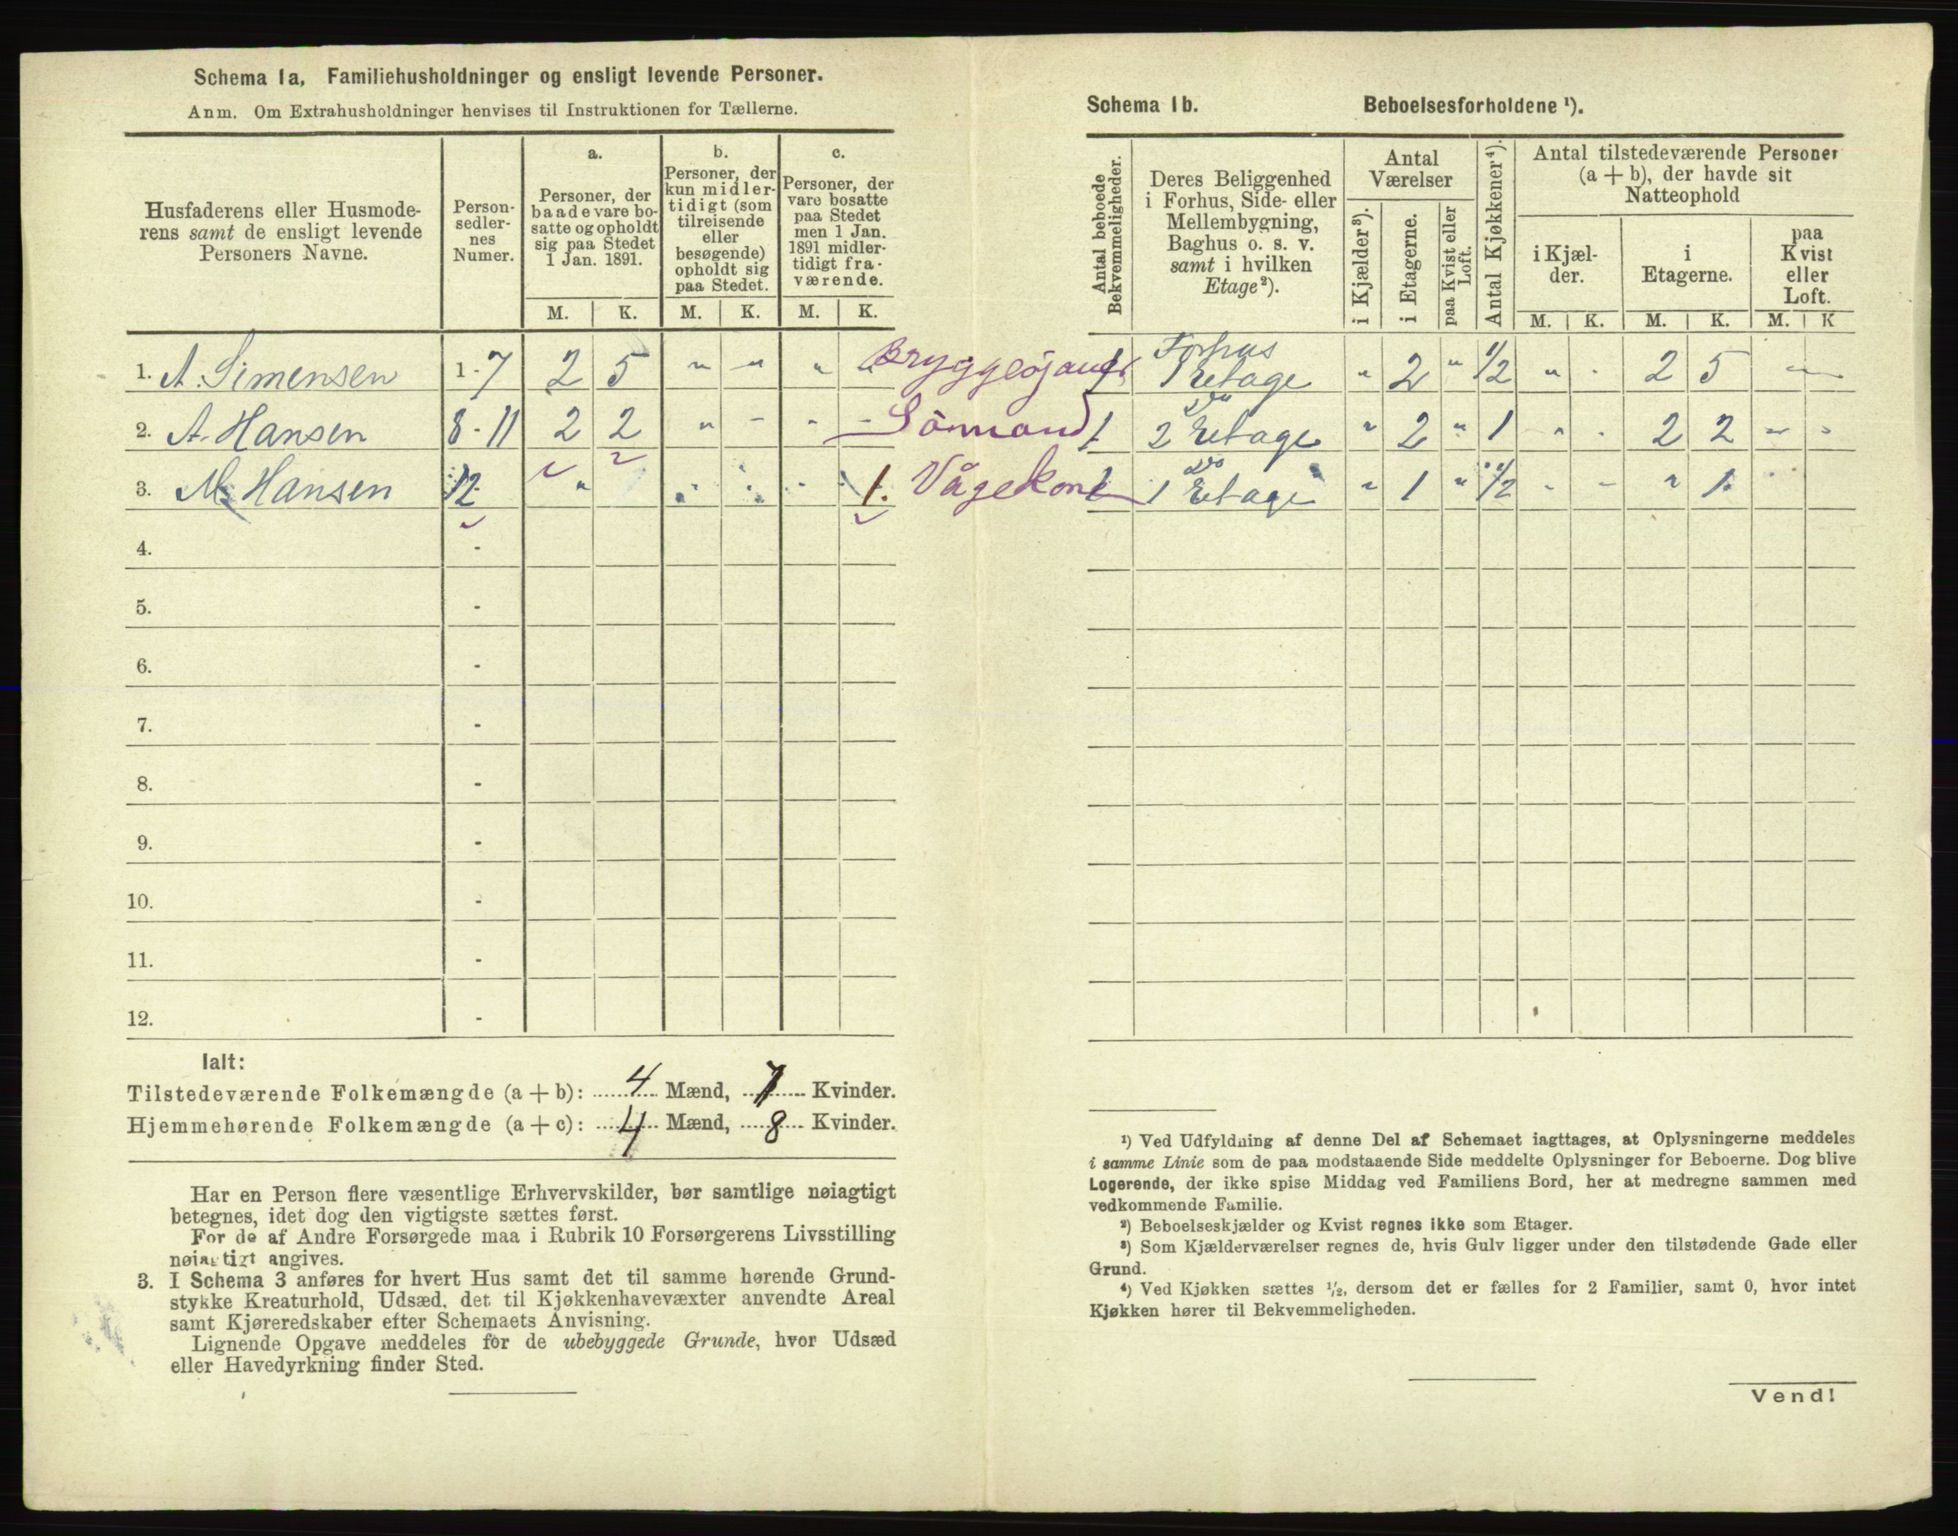 Schema 1a, Familiehusholdninger og ensligt levende Personer.
Anm. Om Extrahusholdninger henvises til Instruktionen for Tællerne.
Husfaderens eller Husmode-
rens samt de ensligt levende
Personers Navne.
Person-
sedler-
nes
Numer.
a.
Personer, der
baade vare bo-
satte og opholdt
sig paa Stedet
1 Jan. 1891.
b.
Personer, der
kun midler-
tidigt (som
tilreisende
eller
besøgende)
opholdt sig
paa Stedet.
c.
Personer, der
vare bosatte
paa Stedet
men 1 Jan.
1891 midler-
tidigt fra-
værende.
M. K. M. K. M. K.
1. A. Simensen 1-7 2 5 " " "
2. A. Hansen 8-11 2 2 " - - -
3. M. Hansen 12 " 1.
4. -
5. -
6. -
7. -
8. -
9. -
10. -
11. -
12. -
Ialt:
Tilstedeværende Folkemængde (a + b): 4 Mænd, 7 Kvinder.
Hjemmehørende Folkemængde (a + c): 4 Mænd, 8 Kvinder.
Har en Person flere væsentlige Erhvervskilder, bør samtlige nøiagtigt
betegnes, idet dog den vigtigste sættes først.
For de af Andre Forsørgede maa i Rubrik 10 Forsørgerens Livsstilling
nøiagtigt angives.
3. I Schema 3 anføres for hvert Hus samt det til samme hørende Grund-
stykke Kreaturhold, Udsæd, det til Kjøkkenhavevæxter anvendte Areal
samt Kjøreredskaber efter Schemaets Anvisning.
Lignende Opgave meddeles for de ubebyggede Grunde, hvor Udsæd
eller Havedyrkning finder Sted.
Schema 1b. Beboelsesforholdene ¹).
Antal beboede
Bekvemmeligheder.
Deres Beliggenhed
i Forhus, Side- eller
Mellembygning,
Baghus o. s. v.
samt i hvilken
Etage²).
Antal
Værelser
i Kjælder³).
i Etagerne.
paa Kvist eller
Loft.
Antal Kjøkkener⁴).
Antal tilstedeværende Personer
(a + b), der havde sit
Natteophold
i Kjæl-
der.
i
Etagerne.
paa
Kvist
eller
Loft.
M. K. M. K. M. K
Bryggesjauer 1 Forhus
1 Etage " 2 " 1/2 " - 2 5
Sömand 1 do
2 Etage " 2 " 1 " - 2 2 " "
Vågekone 1 do
1 Etage " 1 " 1/2 - - " 1.
¹) Ved Udfyldning af denne Del af Schemaet iagttages, at Oplysningerne meddeles
i samme Linie som de paa modstaaende Side meddelte Oplysninger for Beboerne. Dog blive
Logerende, der ikke spise Middag ved Familiens Bord, her at medregne sammen med
vedkommende Familie.
²) Beboelseskjælder og Kvist regnes ikke som Etager.
³) Som Kjælderværelser regnes de, hvis Gulv ligger under den tilstødende Gade eller
Grund.
⁴) Ved Kjøkken sættes 1/2, dersom det er fælles for 2 Familier, samt 0, hvor intet
Kjøkken hører til Bekvemmeligheden.
Vend!